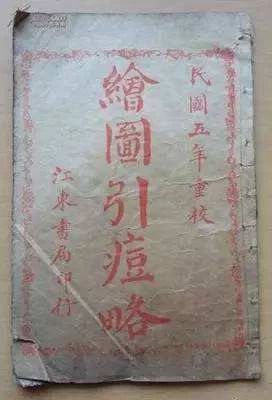 民國五年重校
繪圖引痘略
江東書局印行